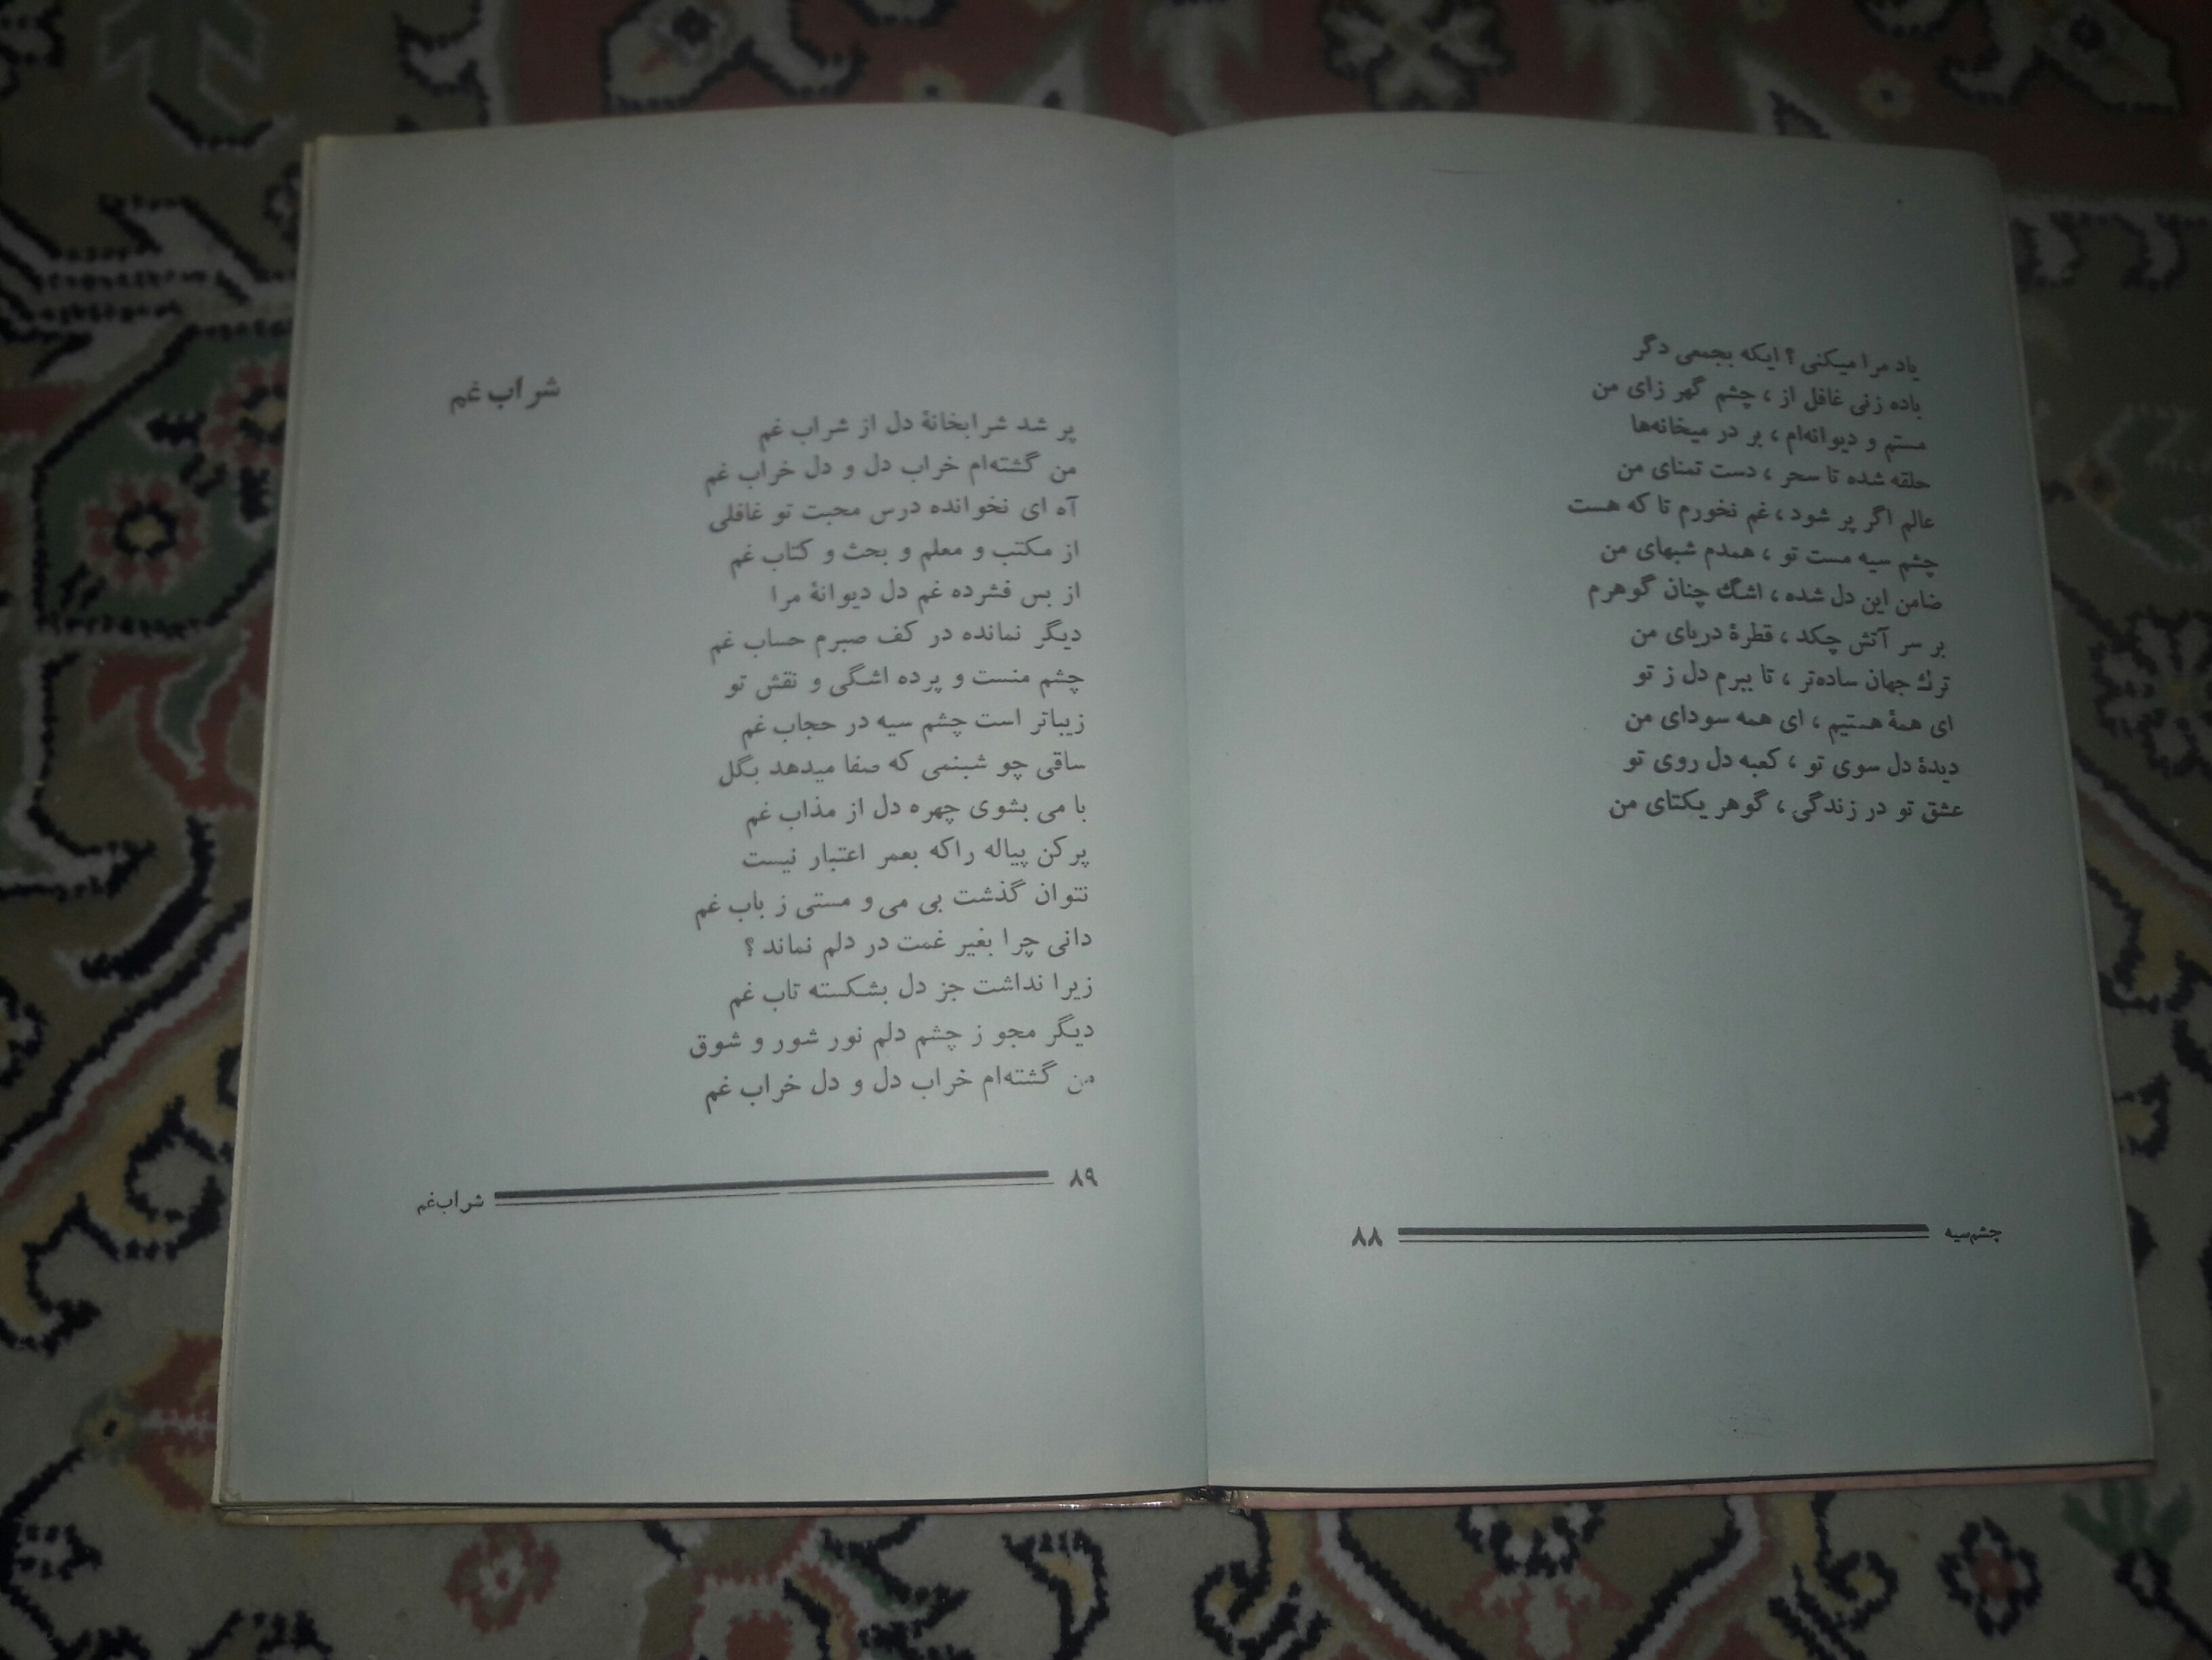 یاد مرا میکنی؟ ایکه بجمعی دگر
باده زنی غافل از ، چشم گهر زای من
مستم و دیوانه‌ام ، بر در میخانه‌ها
حلقه شده تا سحر ، دست تمنای من
عالم اگر پر شود ، غم نخورم تا که هست
چشم سیه مست تو ، همدم شبهای من
ضامن این دل شده ، اشک چنان گوهرم
بر سر آتش چکد ، قطرهٔ دریای من
ترک جهان ساده‌تر ، تا ببرم دل ز تو
ای همهٔ هستیم ، ای همه سودای من
دیدهٔ دل سوی تو ، کعبه دل روی تو
عشق تو در زندگی ، گوهر یکتای من
چشم‌سیه ۸۸
شراب غم
پر شد شرابخانهٔ دل از شراب غم
من گشته‌ام خراب دل و دل خراب غم
آه ای نخوانده درس محبت تو غافلی
از مکتب و معلم و بحث و کتاب غم
از بس فشرده غم دل دیوانهٔ مرا
دیگر نمانده در کف صبرم حساب غم
چشم منست و پرده اشگی و نقش تو
زیباتر است چشم سیه در حجاب غم
ساقی چو شبنمی که صفا میدهد بگل
با می بشوی چهره دل از مذاب غم
پر کن پیاله را که بعمر اعتبار نیست
نتوان گذشت بی می و مستی ز باب غم
دانی چرا بغیر غمت در دلم نماند؟
زیرا نداشت جز دل بشکسته تاب غم
دیگر مجو ز چشم دلم نور شور و شوق
من گشته‌ام خراب دل و دل خراب غم
۸۹ شراب‌غم